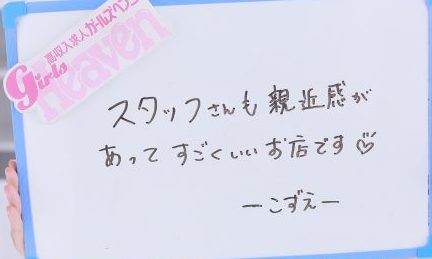 高収入求人ガールズヘブン
girls heaven
スタッフさんも 親近感が
あって すごくいい お店です♡
ーこずえー